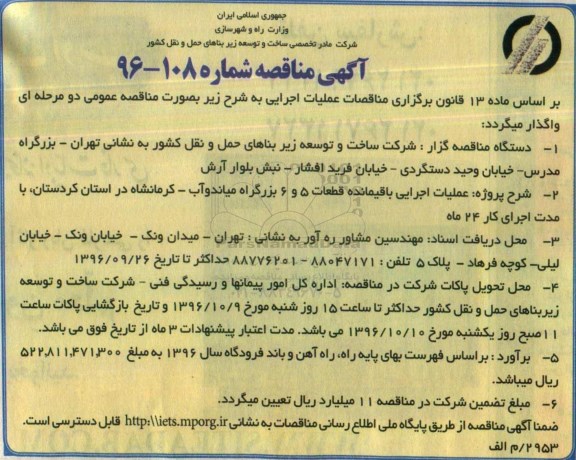 جمهوری اسلامی ایران
وزارت راه و شهرسازی
شرکت مادر تخصصی ساخت و توسعه زیر بناهای حمل و نقل کشور
آگهی مناقصه شماره ۱۰۸-۹۶
بر اساس ماده ۱۳ قانون برگزاری مناقصات عملیات اجرایی به شرح زیر بصورت مناقصه عمومی دو مرحله ای
واگذار میگردد:
۱- دستگاه مناقصه گزار : شرکت ساخت و توسعه زیر بناهای حمل و نقل کشور به نشانی تهران - بزرگراه
مدرس- خیابان وحید دستگردی - خیابان فرید افشار - نبش بلوار آرش
۲- شرح پروژه: عملیات اجرایی باقیمانده قطعات ۵ و ۶ بزرگراه میاندوآب - کرمانشاه در استان کردستان، با
مدت اجرای کار ۲۴ ماه
۳- محل دریافت اسناد: مهندسین مشاور ره آور به نشانی : تهران - میدان ونک - خیابان ونک - خیابان
لیلی- کوچه فرهاد - پلاک ۵ تلفن : ۸۸۰۴۷۱۷۱ - ۸۸۷۷۶۲۰۱ حداکثر تا تاریخ ۱۳۹۶/۰۹/۲۶
۴- محل تحویل پاکات شرکت در مناقصه: اداره کل امور پیمانها و رسیدگی فنی - شرکت ساخت و توسعه
زیربناهای حمل و نقل کشور حداکثر تا ساعت ۱۵ روز شنبه مورخ ۱۳۹۶/۱۰/۹ و تاریخ بازگشایی پاکات ساعت
۱۱صبح روز یکشنبه مورخ ۱۳۹۶/۱۰/۱۰ می باشد. مدت اعتبار پیشنهادات ۳ ماه از تاریخ فوق می باشد.
۵- برآورد : براساس فهرست بهای پایه راه، راه آهن و باند فرودگاه سال ۱۳۹۶ به مبلغ ۵۲۲,۸۱۱,۴۷۱,۳۰۰
ریال میباشد.
۶- مبلغ تضمین شرکت در مناقصه ۱۱ میلیارد ریال تعیین میگردد.
ضمنا آگهی مناقصه از طریق پایگاه ملی اطلاع رسانی مناقصات به نشانی http:\\iets.mporg.ir قابل دسترسی است.
۲۹۵۳/م الف